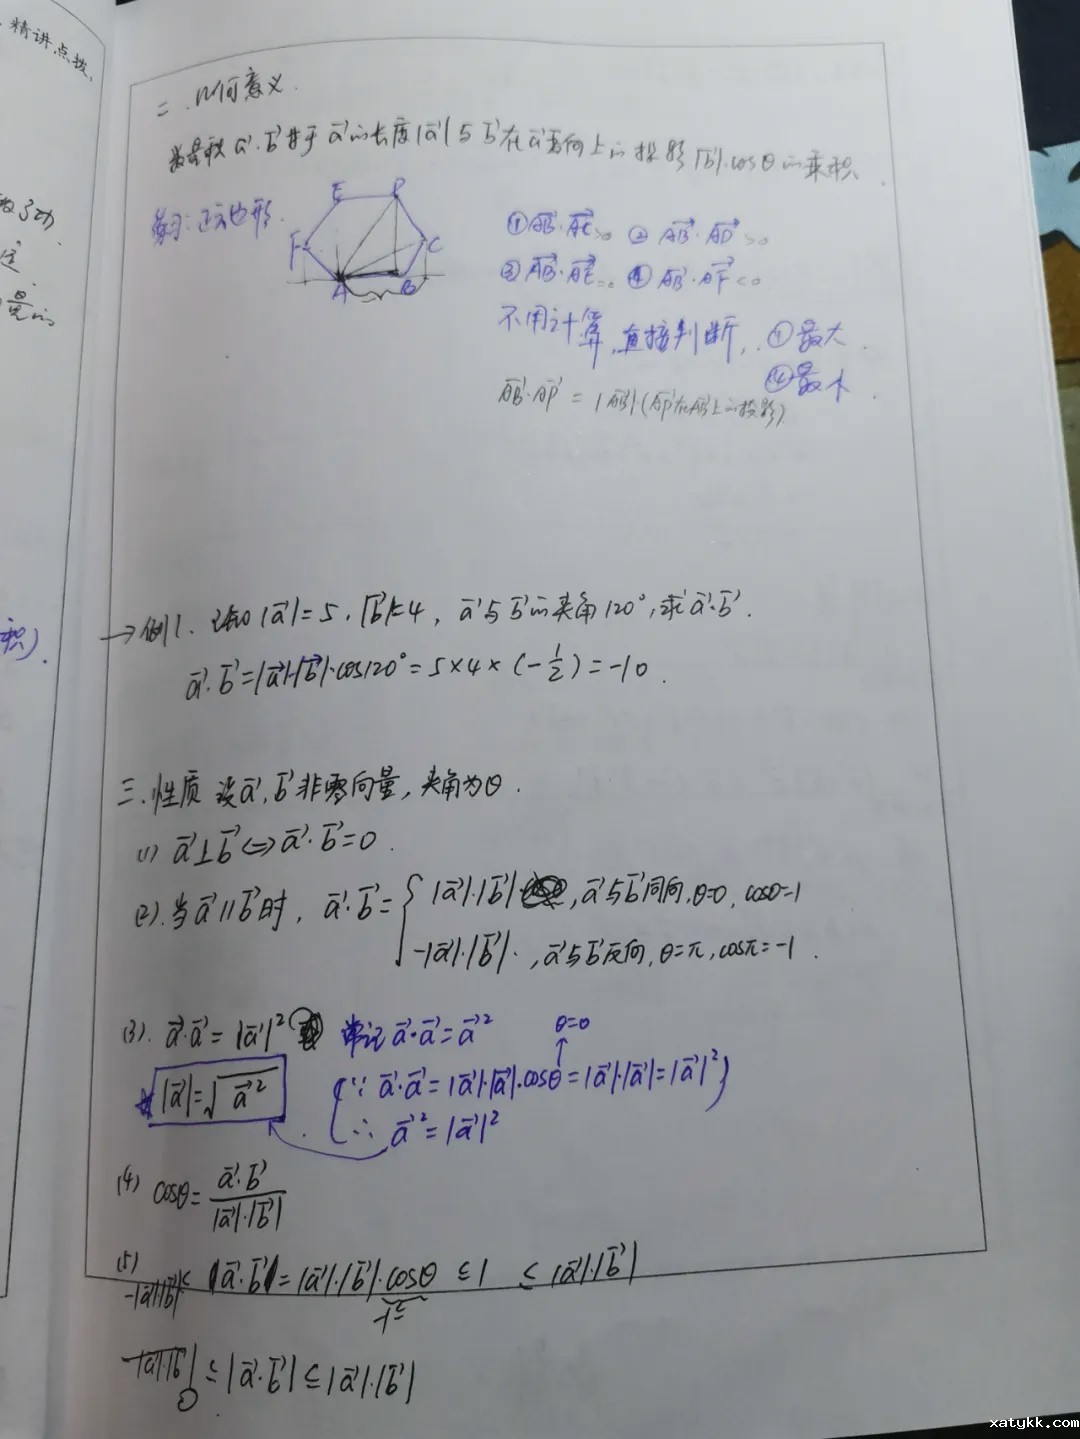 精讲点拨、
二.几何意义.
数量积 a⃗·b⃗ 等于 a⃗ 的长度|a⃗|与 b⃗ 在 a⃗ 方向上的投影|b⃗|·cosθ的乘积.
练习:正六边形.
E D
F C
A B
①AB⃗·AC⃗>0 ②AB⃗·AD⃗>0
③AB⃗·AE⃗=0 ④AB⃗·AF⃗<0
不用计算,直接判断,.①最大.
④最小.
AB⃗·AP⃗ = |AB⃗|(AP⃗在AB⃗上的投影)
→例1. 已知|a⃗|=5,|b⃗|=4, a⃗与b⃗的夹角120°,求a⃗·b⃗.
a⃗·b⃗=|a⃗|·|b⃗|·cos120°=5×4×(-1/2)=-10.
积).
三.性质 设a⃗,b⃗非零向量,夹角为θ.
(1) a⃗⊥b⃗⇔a⃗·b⃗=0.
(2).当a⃗∥b⃗时, a⃗·b⃗={ |a⃗|·|b⃗|· ,a⃗与b⃗同向,θ=0, cosθ=1
-|a⃗|·|b⃗|· ,a⃗与b⃗反向,θ=π,cosπ=-1.
(3). a⃗·a⃗=|a⃗|² 常记 a⃗·a⃗=a⃗² θ=0
|a⃗|=√a⃗² (∵ a⃗·a⃗=|a⃗|·|a⃗|·cosθ=|a⃗|·|a⃗|=|a⃗|²)
∴ a⃗²=|a⃗|²
(4) cosθ= a⃗·b⃗/|a⃗|·|b⃗|
(5) -|a⃗||b⃗|≤ |a⃗·b⃗|=|a⃗|·|b⃗|·cosθ ≤1 ≤|a⃗|·|b⃗|
-1≤
-|a⃗|·|b⃗| ≤|a⃗·b⃗|≤|a⃗|·|b⃗|
0
xatykk.com